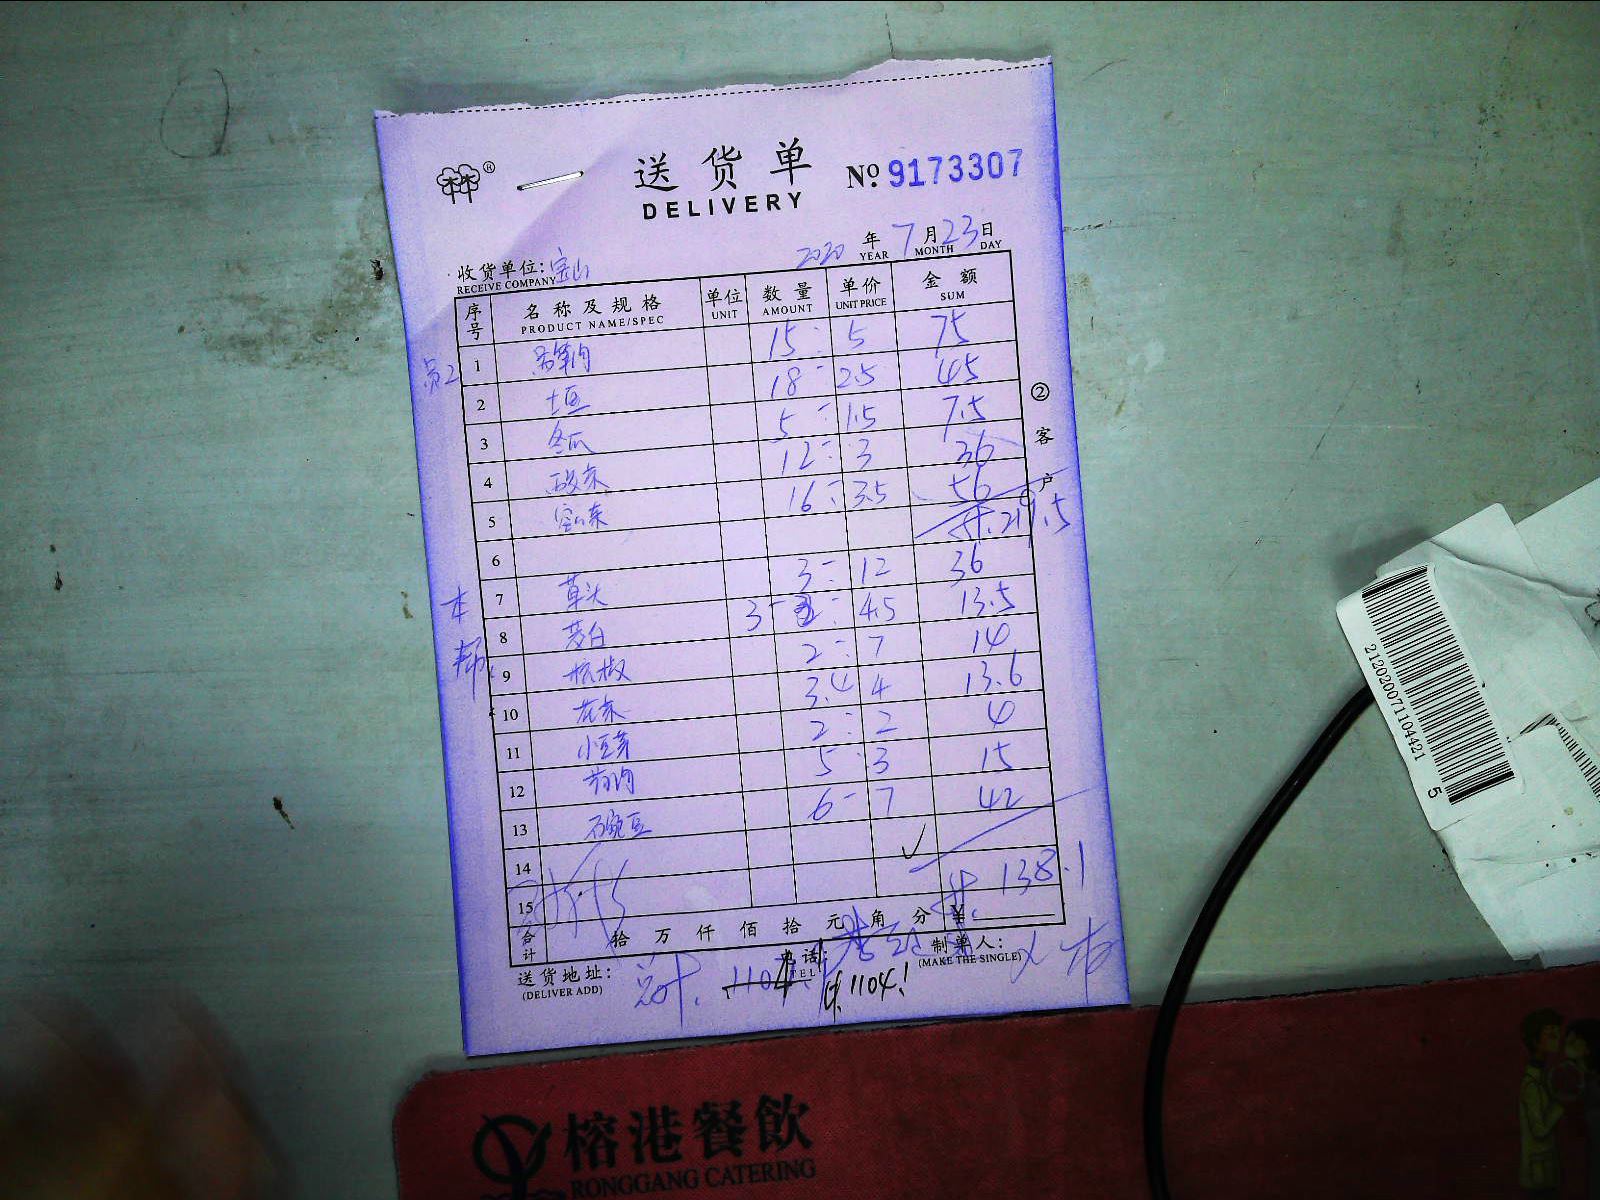 送货单
DELIVERY
№ 9173307
2020 年 7 月 23 日
YEAR MONTH DAY
收货单位: 宝山
RECEIVE COMPANY
序号 名称及规格 单位 数量 单价 金额
PRODUCT NAME/SPEC UNIT AMOUNT UNIT PRICE SUM
员工
1 15 5 75
2 18 2.5 45
3 冬瓜 5 1.5 7.5
4 12 3 36
5 16 3.5 56
计.219.5
6
本帮
7 草头 3 12 36
8 茭白 3 4.5 13.5
9 杭椒 2 7 14
10 花菜 3.4 4 13.6
11 小豆芽 2 2 4
12 5 3 15
13 石豌豆 6 7 42
14
15
计. 138.1
合计 拾 万 仟 佰 拾 元 角 分 ¥:
送货地址:
(DELIVER ADD)
电话:
TEL
制单人:
(MAKE THE SINGLE)
总计. 1104
计.1104!
②客户
2120200711044215
榕港餐飲
RONGGANG CATERING